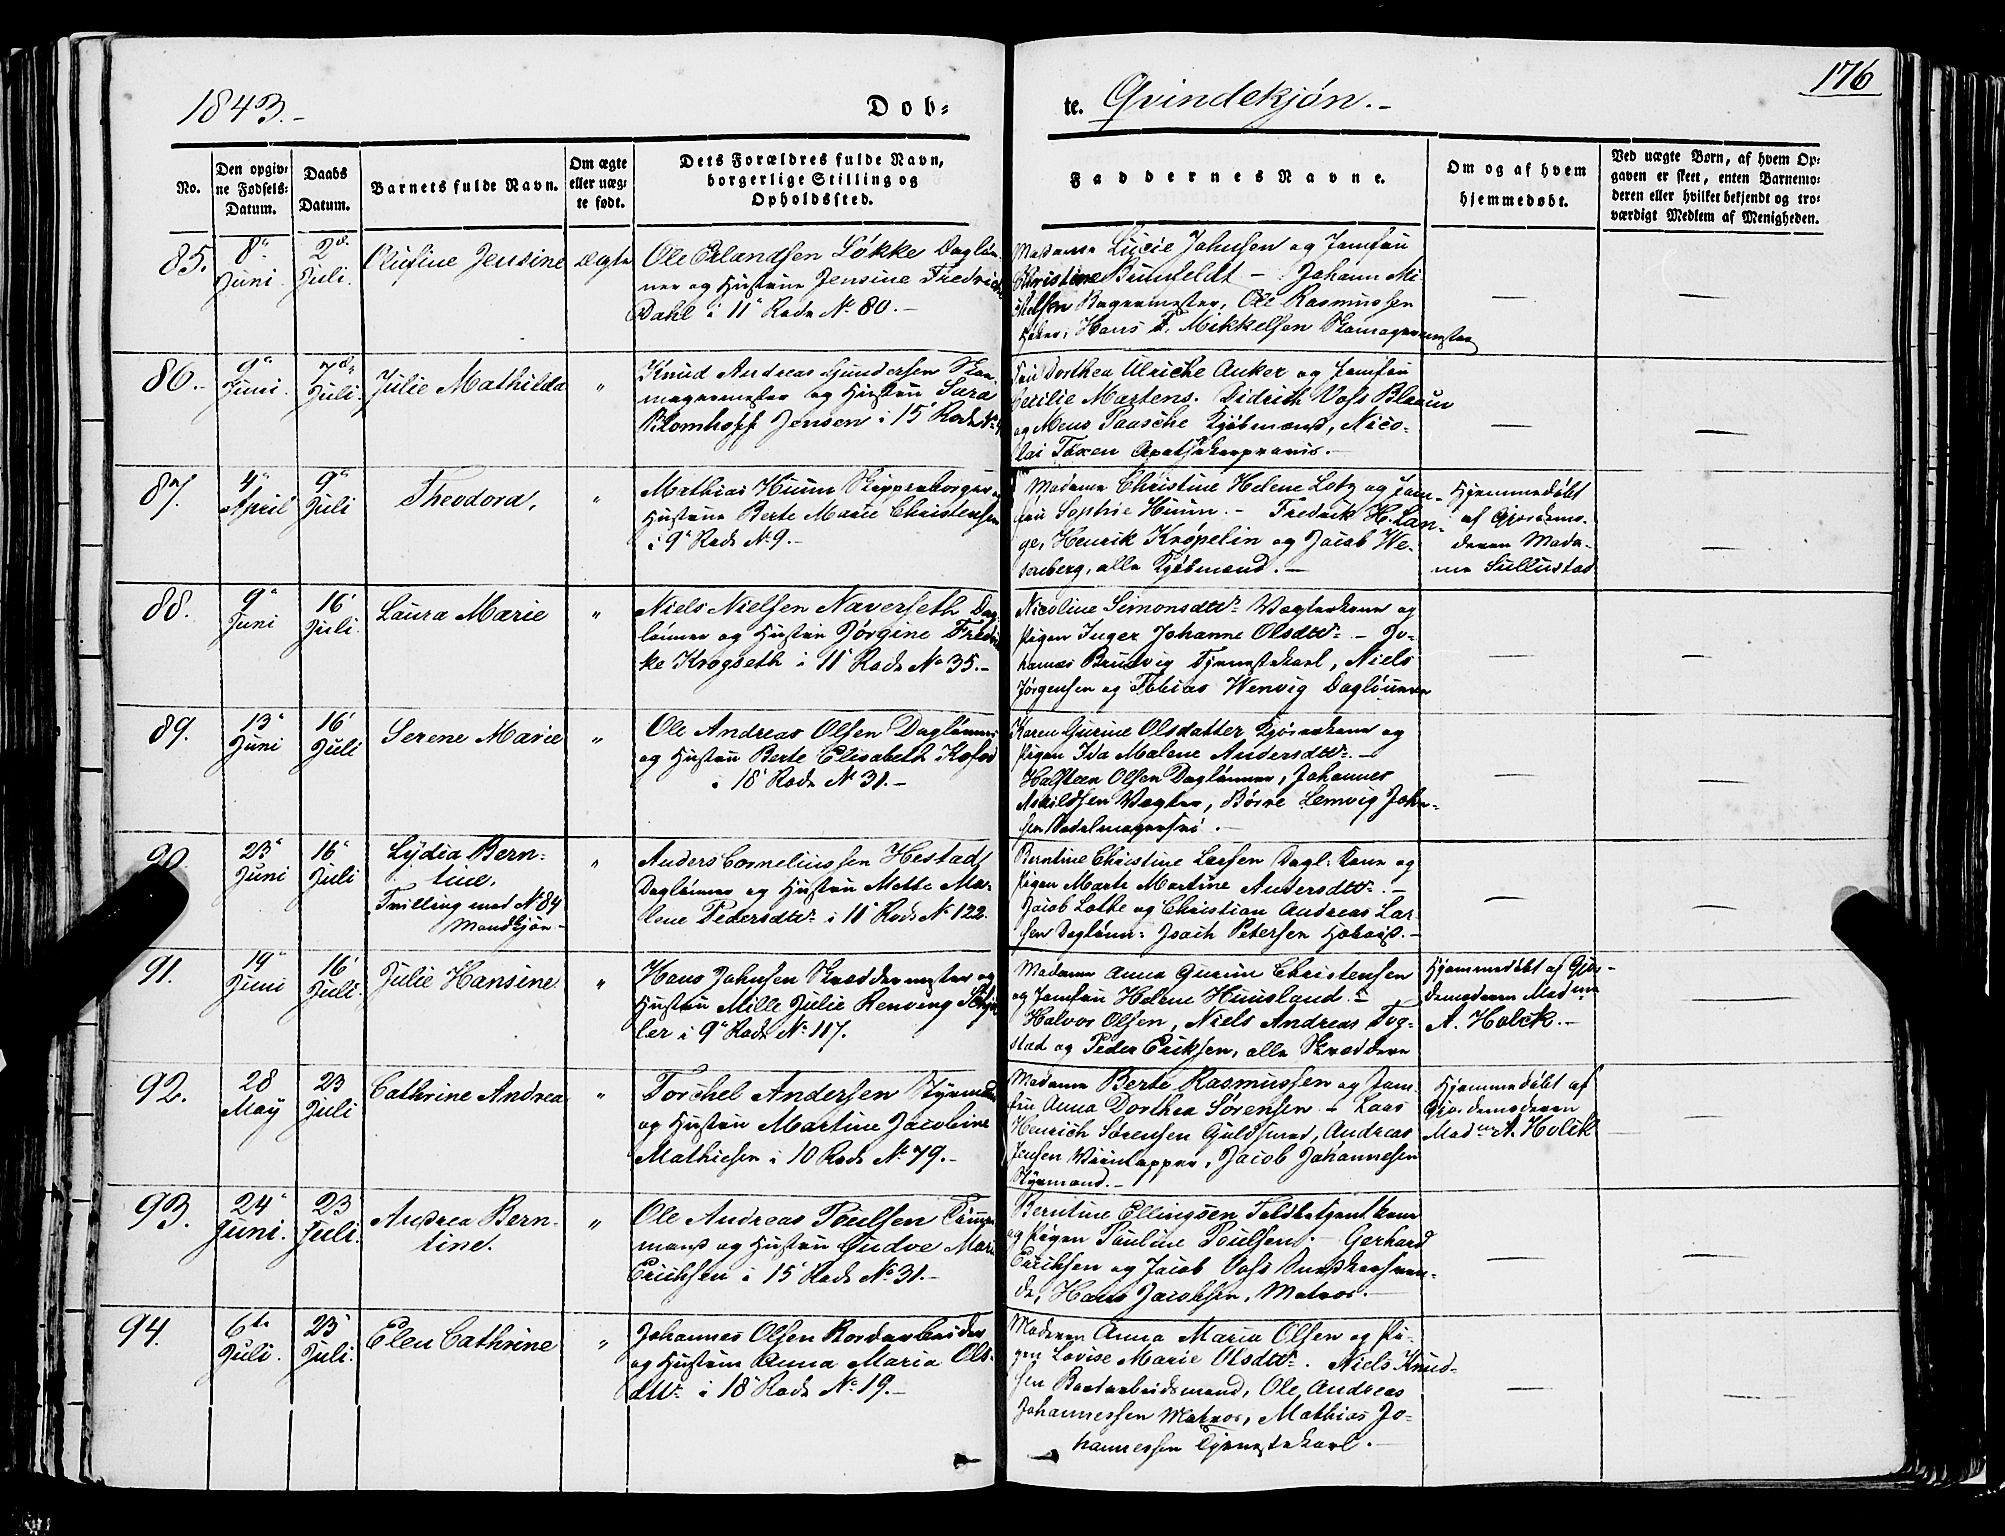 176
1843.-
Døb-
te. Qvindekjøn.-
No.
Den opgiv-
ne Fødsels-
Datum.
Daabs
Datum.
Barnets fulde Navn.
Om ægte
eller uæg-
te født.
Dets Forældres fulde Navn,
borgerlige Stilling og
Opholdssted.
Faddernes Navne.
Om og af hvem
hjemmedøbt.
Ved uægte Børn, af hvem Op-
gaven er skeet, enten Barnemo-
deren eller hvilket bekjendt og tro-
værdigt Medlem af Menigheden.
85.
8de
Juni.
2d
Juli.
Olufine Jensine
ægte
Ole Erlandsen Løkke Dagløn-
ner og Hustrue Jensine Fredrich
Dahl i 11te Rode No 80.-
Madame Lucie Johnsen og Jomfru
Christine Bumfeldt - Johann Mi-
Bagermester, Ole Rasmussen
Høker, Hans F. Mikkelsen Skomagermester
—
—
86.
9de
Juni.
7d
Juli.
Julie Mathilda
"
Knud Andreas Gundersen Sko-
magermester og Hustru Sara
Blomhoff Jensen i 15de Rode No
Fru Dorthea Ulriche Auker og Jomfru
Cecilie Martens. Didrich Voss Blaun
og Mens Paasche Kjøbmænd, Nico-
lai Taxen Apothekerprovis.-
—
—
87.
4de
April
9de
Juli
Theodora,
"
Mathias Huun Skipperborger og
Hustrue Berte Marie Christensen
i 9de Rode No 9.-
Madame Christine Helene Lotz og Jom-
fru Sophie Huun.- Fredrik H. Lan-
ge, Henrik Krøpelin og Jacob We-
senberg, alle Kjøbmænd.-
Hjemmedøbt
af Gjordemo-
deren Mada-
me Sullustad
—
88.
9de
Juni
16
Juli.
Laura Marie
"
Niels Nielsen Naverseth Dag-
lønner og Hustru Jørgine Fredri-
ke Krogseth i 11te Rode No 35.-
Nicoline Simonsdttr Vægterkone og
Pigen Inger Johanne Olsdttr.- Jo-
hannes Brudvig Tjenestekarl, Niels
Jørgensen og Tobias Wenvig Daglønner
—
—
89.
13de
Juni
16
Juli
Serene Marie
"
Ole Andreas Olsen Daglønner
og Hustru Berte Elisabeth Kofod
i 18de Rode No 31.-
Karen Gurine Olsdatter Kjørerkone og
Pigen Ida Malene Andersdttr.-
Halsteen Olsen Daglønner, Johannes
Askildsen Vægter, Børre Lemvig John-
sen Sadelmagersv.-
—
—
90.
23de
Juni
16de
Juli
Lydia Bern-
tine,
Tvilling med No 84
Mandkjøn-
"
Anders Corneliussen Hestad
Daglønner og Hustru Mette Ma-
lene Pedersdttr i 11te Rode No 122.
Berntine Christine Larsen Dagl. kone og
Pigen Marte Martine Andersdttr.-
Jacob Lothe og Christian Andreas Lar-
sen Daglønn: Joach Petersen Hoboist.-
—
—
91.
19de
Juni
16
Juli.
Julie Hansine
"
Hans Johnsen Skræddermester og
Hustru Mille Julie Renving
ler i 9de Rode No 117.
Madame Anna Gurine Christensen
og Jomfru Helene Huusland.-
Halvor Olsen, Niels Andreas Tog-
stad og Peder Eriksen, alle Skræddere
Hjemmedøbt af Gjor-
demoderen Madme
A. Holck.-
—
92.
28
May
23
Juli
Cathrine Andrea
"
Torchel Andersen Styrmand
og Hustru Martine Jacobine
Mathiesen i 10 Rode No 79.-
Madame Berte Rasmussen og Jom-
fru Anna Dorthea Sørensen.- Laas
Henrich Sørensen Guldsmed, Andreas
Jensen Viintapper, Jacob Johannesen
Styrmand.-
Hjemmedøbt af
Gjordemoderen
Madme A. Holck
—
93.
24de
Juni.
23
Juli.
Andrea Bern-
tine.
"
Ole Andreas Poulsen Tømmer-
mand og Hustru Gudve Marie
Erichsen i 15de Rode No 31.-
Berntine Ellingsen Toldbetjentkone
og Pigen Pauline Poulsen.- Gerhard
Erichsen og Jacob Voss Snedkersven-
de, Hans Jacobsen, Matros.-
—
—
94.
6te
Juli.
23
Juli.
Elen Cathrine
"
Johannes Olsen Bordarbeider
og Hustru Anna Maria Ols-
dttr. i 18de Rode No 19.-
Madamen Anna Maria Olsen og Pi-
gen Lovise Marie Olsdttr. Niels Knud-
sen Bordarbeidsmand, Ole Andreas
Johannessen Matros, Mathias Jo-
hannessen Tjenestekarl.-
—
—